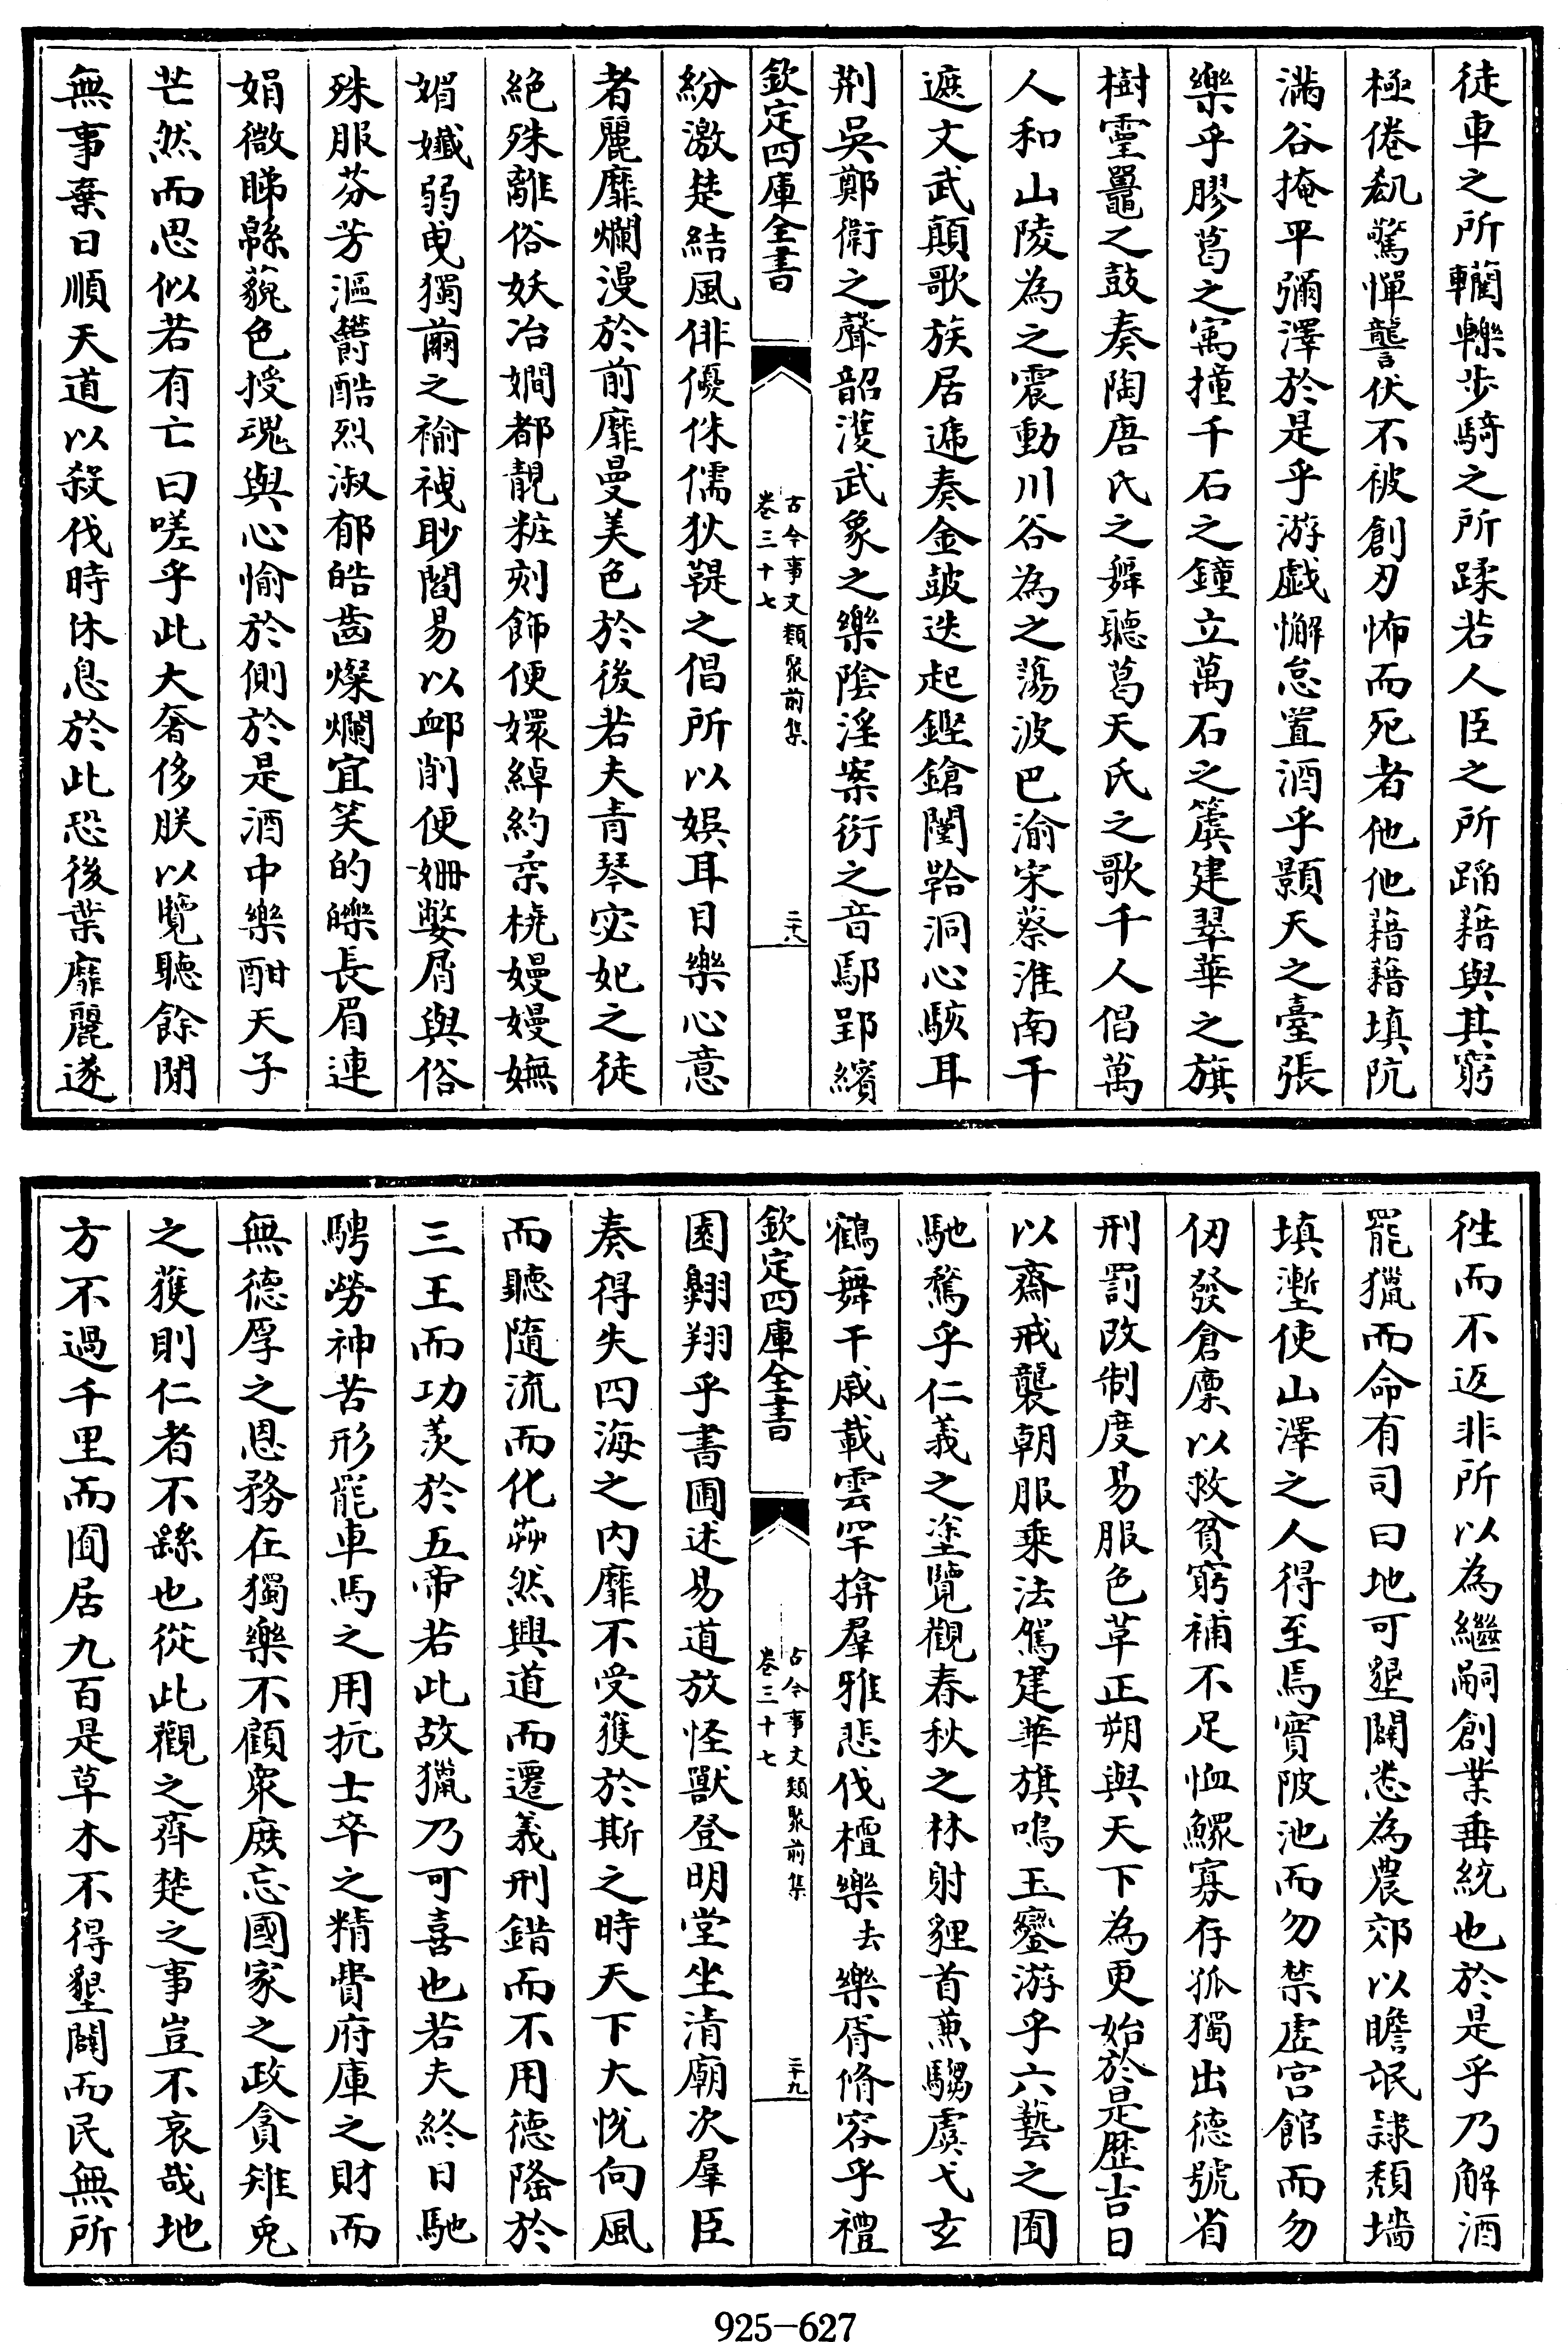 徒車之所轥轢步騎之所蹂若人臣之所蹈藉與其窮
極倦㕁驚憚讋伏不被創刃怖而死者他他藉藉填阬
滿谷掩平彌澤於是乎游戯懈怠置酒乎顥天之臺張
樂乎膠葛之㝢撞千石之鐘立萬石之簴建翠華之旗
樹靈鼉之鼓奏陶唐氏之舞聽葛天氏之歌千人倡萬
人和山陵為之震動川谷為之蕩波巴渝宋蔡淮南干
遮文武顛歌族居遞奏金鼓迭起鏗鎗闛鞈洞心駭耳
荆吳鄭衛之聲韶濩武象之樂隂淫案衍之音鄢郢繽
欽定四庫全書
古今事文類聚前集
卷三十七
三十八
紛激楚結風俳優侏儒狄鞮之倡所以娯耳目樂心意
者麗靡爛漫於前靡曼美色於後若夫青琴宓妃之徒
絶殊離俗妖冶嫺都靚粧刻飾便嬛綽約柔橈嫚嫚嫵
媚孅弱曳獨繭之褕袣眇閻易以䘏削便姗嫳屑與俗
殊服芬芳漚鬱酷烈淑郁皓齒燦爛宜笑的皪長眉連
娟微睇緜藐色授魂與心愉於側於是酒中樂酣天子
芒然而思似若有亡曰嗟乎此大奢侈朕以覽聽餘閒
無事棄日順天道以殺伐時休息於此恐後葉靡麗遂
徃而不返非所以為繼嗣創業垂統也於是乎乃解酒
罷獵而命有司曰地可墾闢悉為農郊以瞻氓隷頽墻
填壍使山澤之人得至焉實陂池而勿禁虚宫館而勿
仞發倉廩以救貧窮補不足恤鰥寡存孤獨出德號省
刑罰改制度易服色草正朔與天下為更始於是歴吉日
以齋戒襲朝服乘法駕建華旗鳴玉鑾游乎六藝之囿
馳騖乎仁義之塗覽觀春秋之林射貍首兼騶虞弋玄
鶴舞干戚載雲䍐揜羣雅悲伐檀樂去樂胥脩容乎禮
欽定四庫全書
古今事文類聚前集
卷三十七
三十九
園翺翔乎書圃述易道放怪獸登明堂坐清廟次羣臣
奏得失四海之内靡不受獲於斯之時天下大悅向風
而聽隨流而化芔然興道而遷義刑錯而不用德隆於
三王而功羡於五帝若此故獵乃可喜也若夫終日馳
騁勞神苦形罷車馬之用抏士卒之精費府庫之財而
無德厚之恩務在獨樂不顧衆庶忘國家之政貪雉兎
之獲則仁者不繇也從此觀之齊楚之事豈不哀哉地
方不過千里而囿居九百是草木不得墾闢而民無所
925-627